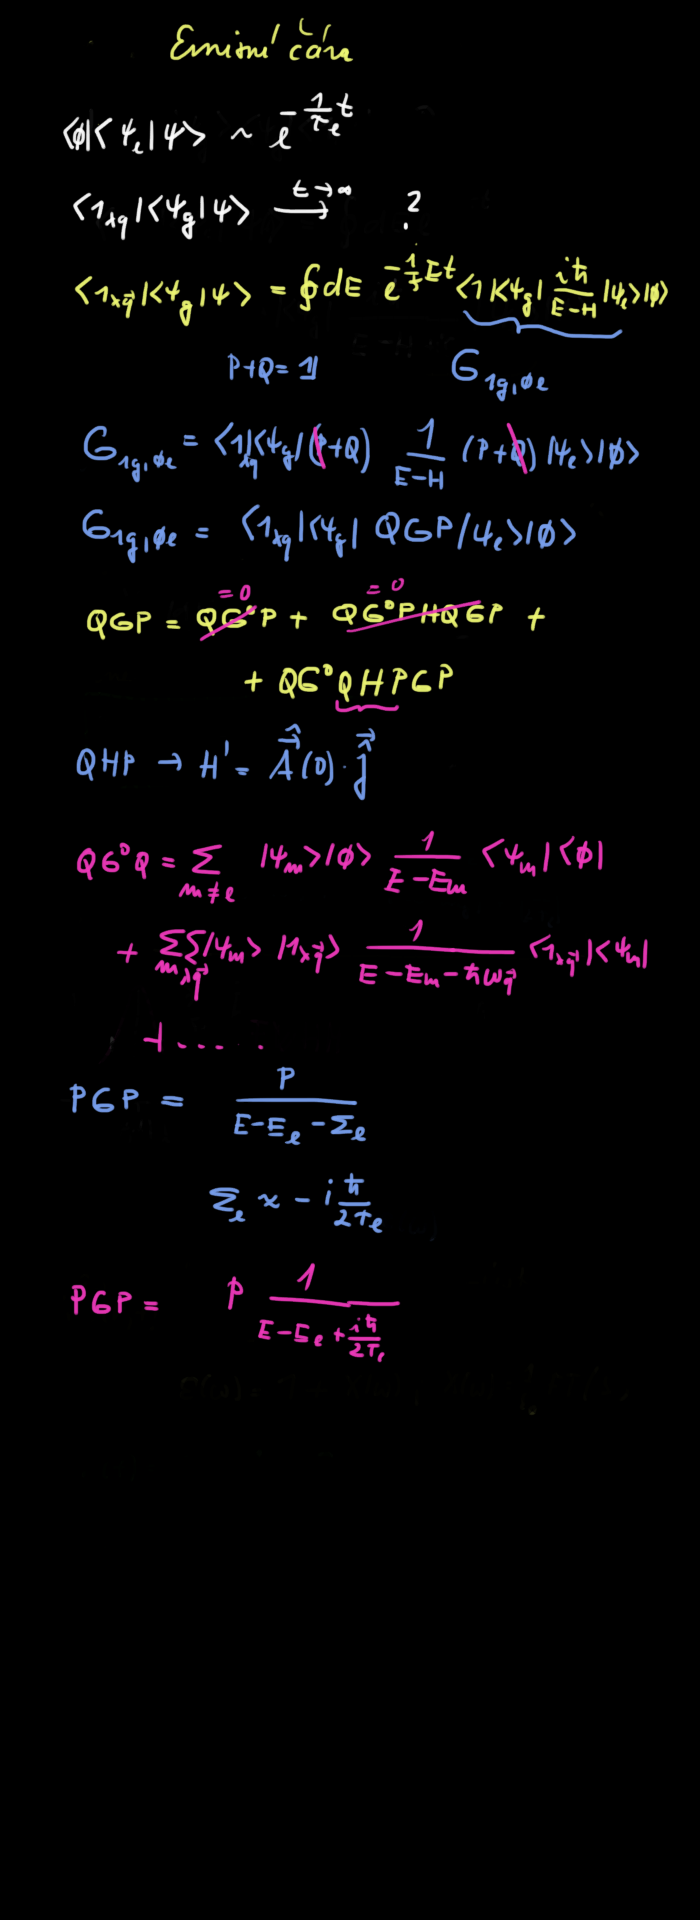 Emisní čára
⟨ø|⟨ψ_e|ψ⟩ ~ e^{-\frac{1}{τ_e}t}
⟨1_{λq}|⟨ψ_g|ψ⟩ \xrightarrow{t→∞} ?
⟨1_{λ\vec{q}}|⟨ψ_g|ψ⟩ = ∮dE e^{-\frac{i}{ħ}Et} ⟨1|⟨ψ_g| \frac{iħ}{E-H} |ψ_e⟩|ø⟩
P+Q = 1 G_{1g,øe}
G_{1g,øe} = ⟨1_{λq}|⟨ψ_g|(P+Q) \frac{1}{E-H} (P+Q) |ψ_e⟩|ø⟩
G_{1g,øe} = ⟨1_{λq}|⟨ψ_g| QGP|ψ_e⟩|ø⟩
= 0 = 0
QGP = QG⁰P + QG⁰PHQGP +
+ QG⁰QHPGP
QHP → H' = \hat{\vec{A}}(0)·\hat{\vec{j}}
QG⁰Q = \sum_{m≠e} |ψ_m⟩|ø⟩ \frac{1}{E-E_m} ⟨ψ_m|⟨ø|
+ \sum_m \sum_{λ\vec{q}} |ψ_m⟩ |1_{λ\vec{q}}⟩ \frac{1}{E-E_m-ħω_{\vec{q}}} ⟨1_{λ\vec{q}}|⟨ψ_m|
+ .....
PGP = \frac{P}{E-E_e-Σ_e}
Σ_e ≈ -i\frac{ħ}{2τ_e}
PGP = P \frac{1}{E-E_e+\frac{iħ}{2τ_e}}